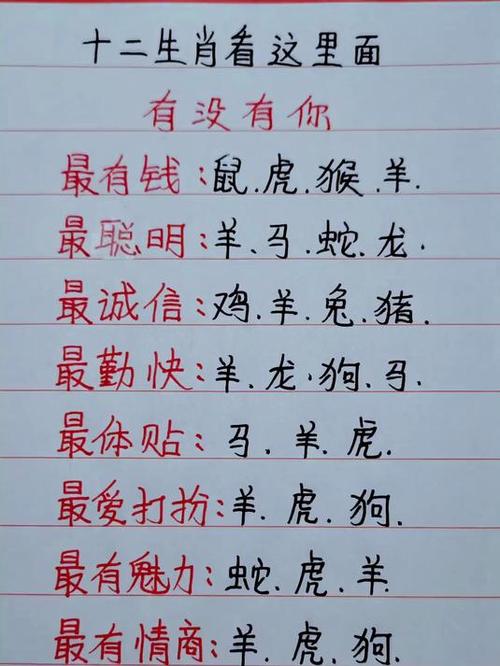 十二生肖看这里面
有没有你
最有钱:鼠.虎.猴.羊.
最聪明:羊、马.蛇.龙.
最诚信:鸡.羊.兔.猪.
最勤快:羊.龙.狗.马.
最体贴:马.羊.虎.
最爱打扮:羊.虎.狗.
最有魅力:蛇.虎.羊.
最有情商:羊.虎.狗.